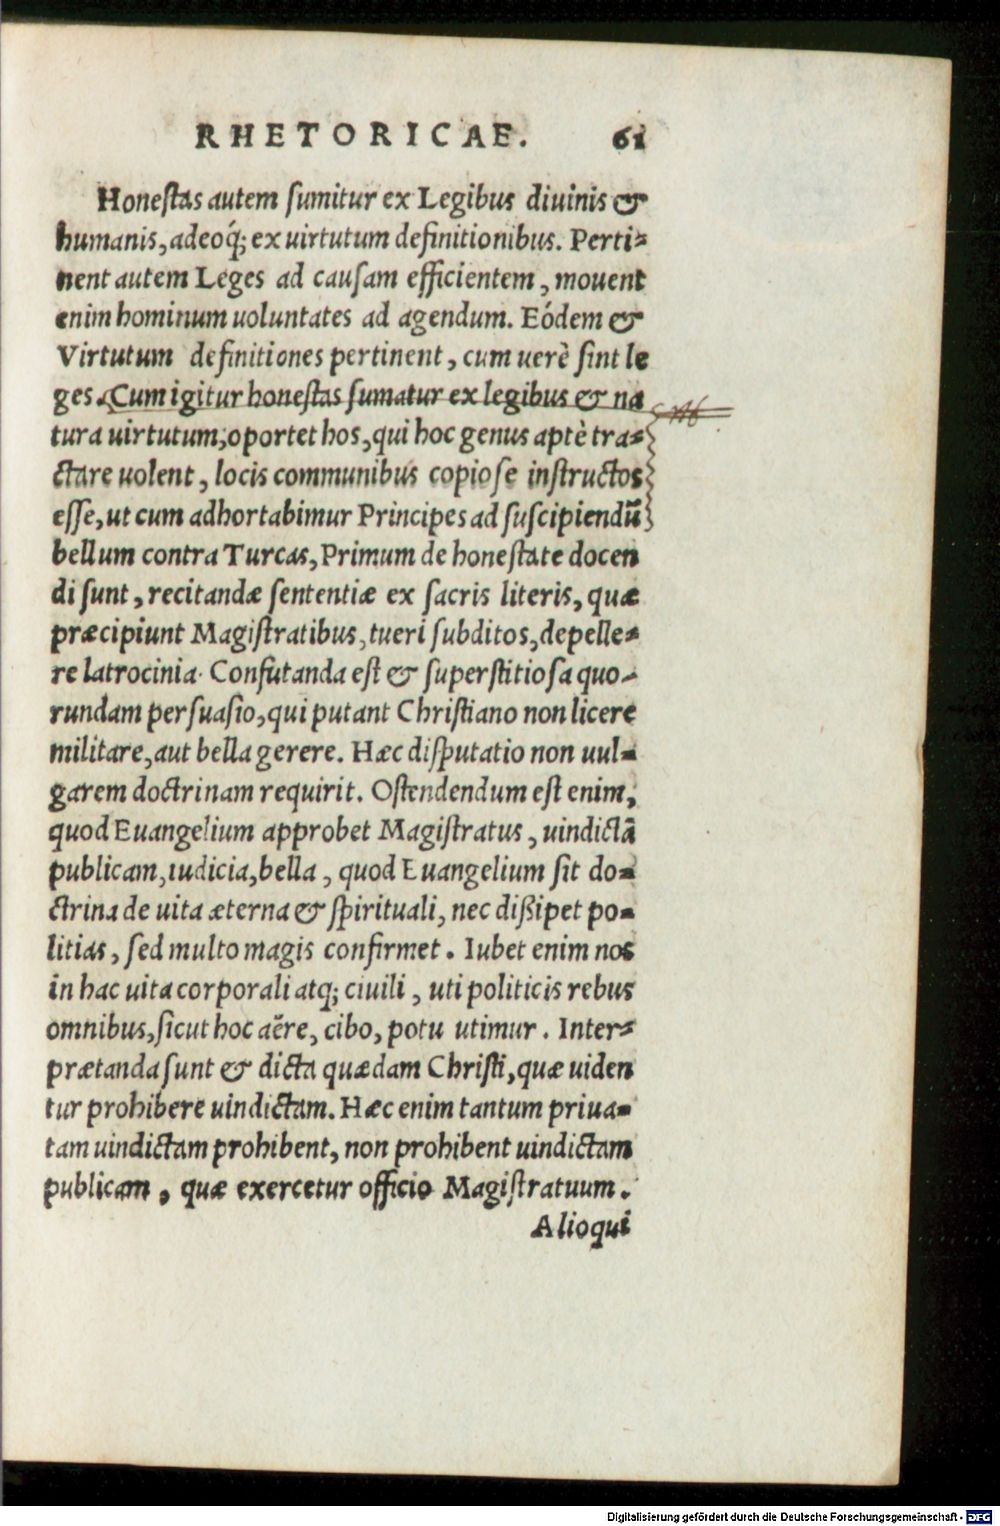 RHETORICAE. 61
Honeſtas autem ſumitur ex Legibus diuinis &
humanis, adeoq́; ex uirtutum definitionibus. Perti-
nent autem Leges ad cauſam efficientem, mouent
enim hominum uoluntates ad agendum. Eódem &
Virtutum definitiones pertinent, cum uerè ſint le
ges. Cum igitur honeſtas ſumatur ex legibus & na
tura uirtutum; oportet hos, qui hoc genus aptè tra-
ctare uolent, locis communibus copioſe inſtructos
eſſe, ut cum adhortabimur Principes ad ſuſcipiendũ
bellum contra Turcas, Primum de honeſtate docen
di ſunt, recitandæ ſententiæ ex ſacris literis, quæ
præcipiunt Magiſtratibus, tueri ſubditos, depelle-
re latrocinia. Confutanda eſt & ſuperſtitioſa quo-
rundam perſuaſio, qui putant Chriſtiano non licere
militare, aut bella gerere. Hæc diſputatio non uul-
garem doctrinam requirit. Oſtendendum eſt enim,
quod Euangelium approbet Magiſtratus, uindictã
publicam, iudicia, bella, quod Euangelium ſit do-
ctrina de uita æterna & ſpirituali, nec dißipet po-
litias, ſed multo magis confirmet. Iubet enim nos
in hac uita corporali atq; ciuili, uti politicis rebus
omnibus, ſicut hoc aëre, cibo, potu utimur. Inter-
prætanda ſunt & dicta quædam Chriſti, quæ uiden
tur prohibere uindictam. Hæc enim tantum priua-
tam uindictam prohibent, non prohibent uindictam
publicam, quæ exercetur officio Magiſtratuum.
Alioqui
Digitalisierung gefördert durch die Deutsche Forschungsgemeinschaft - DFG